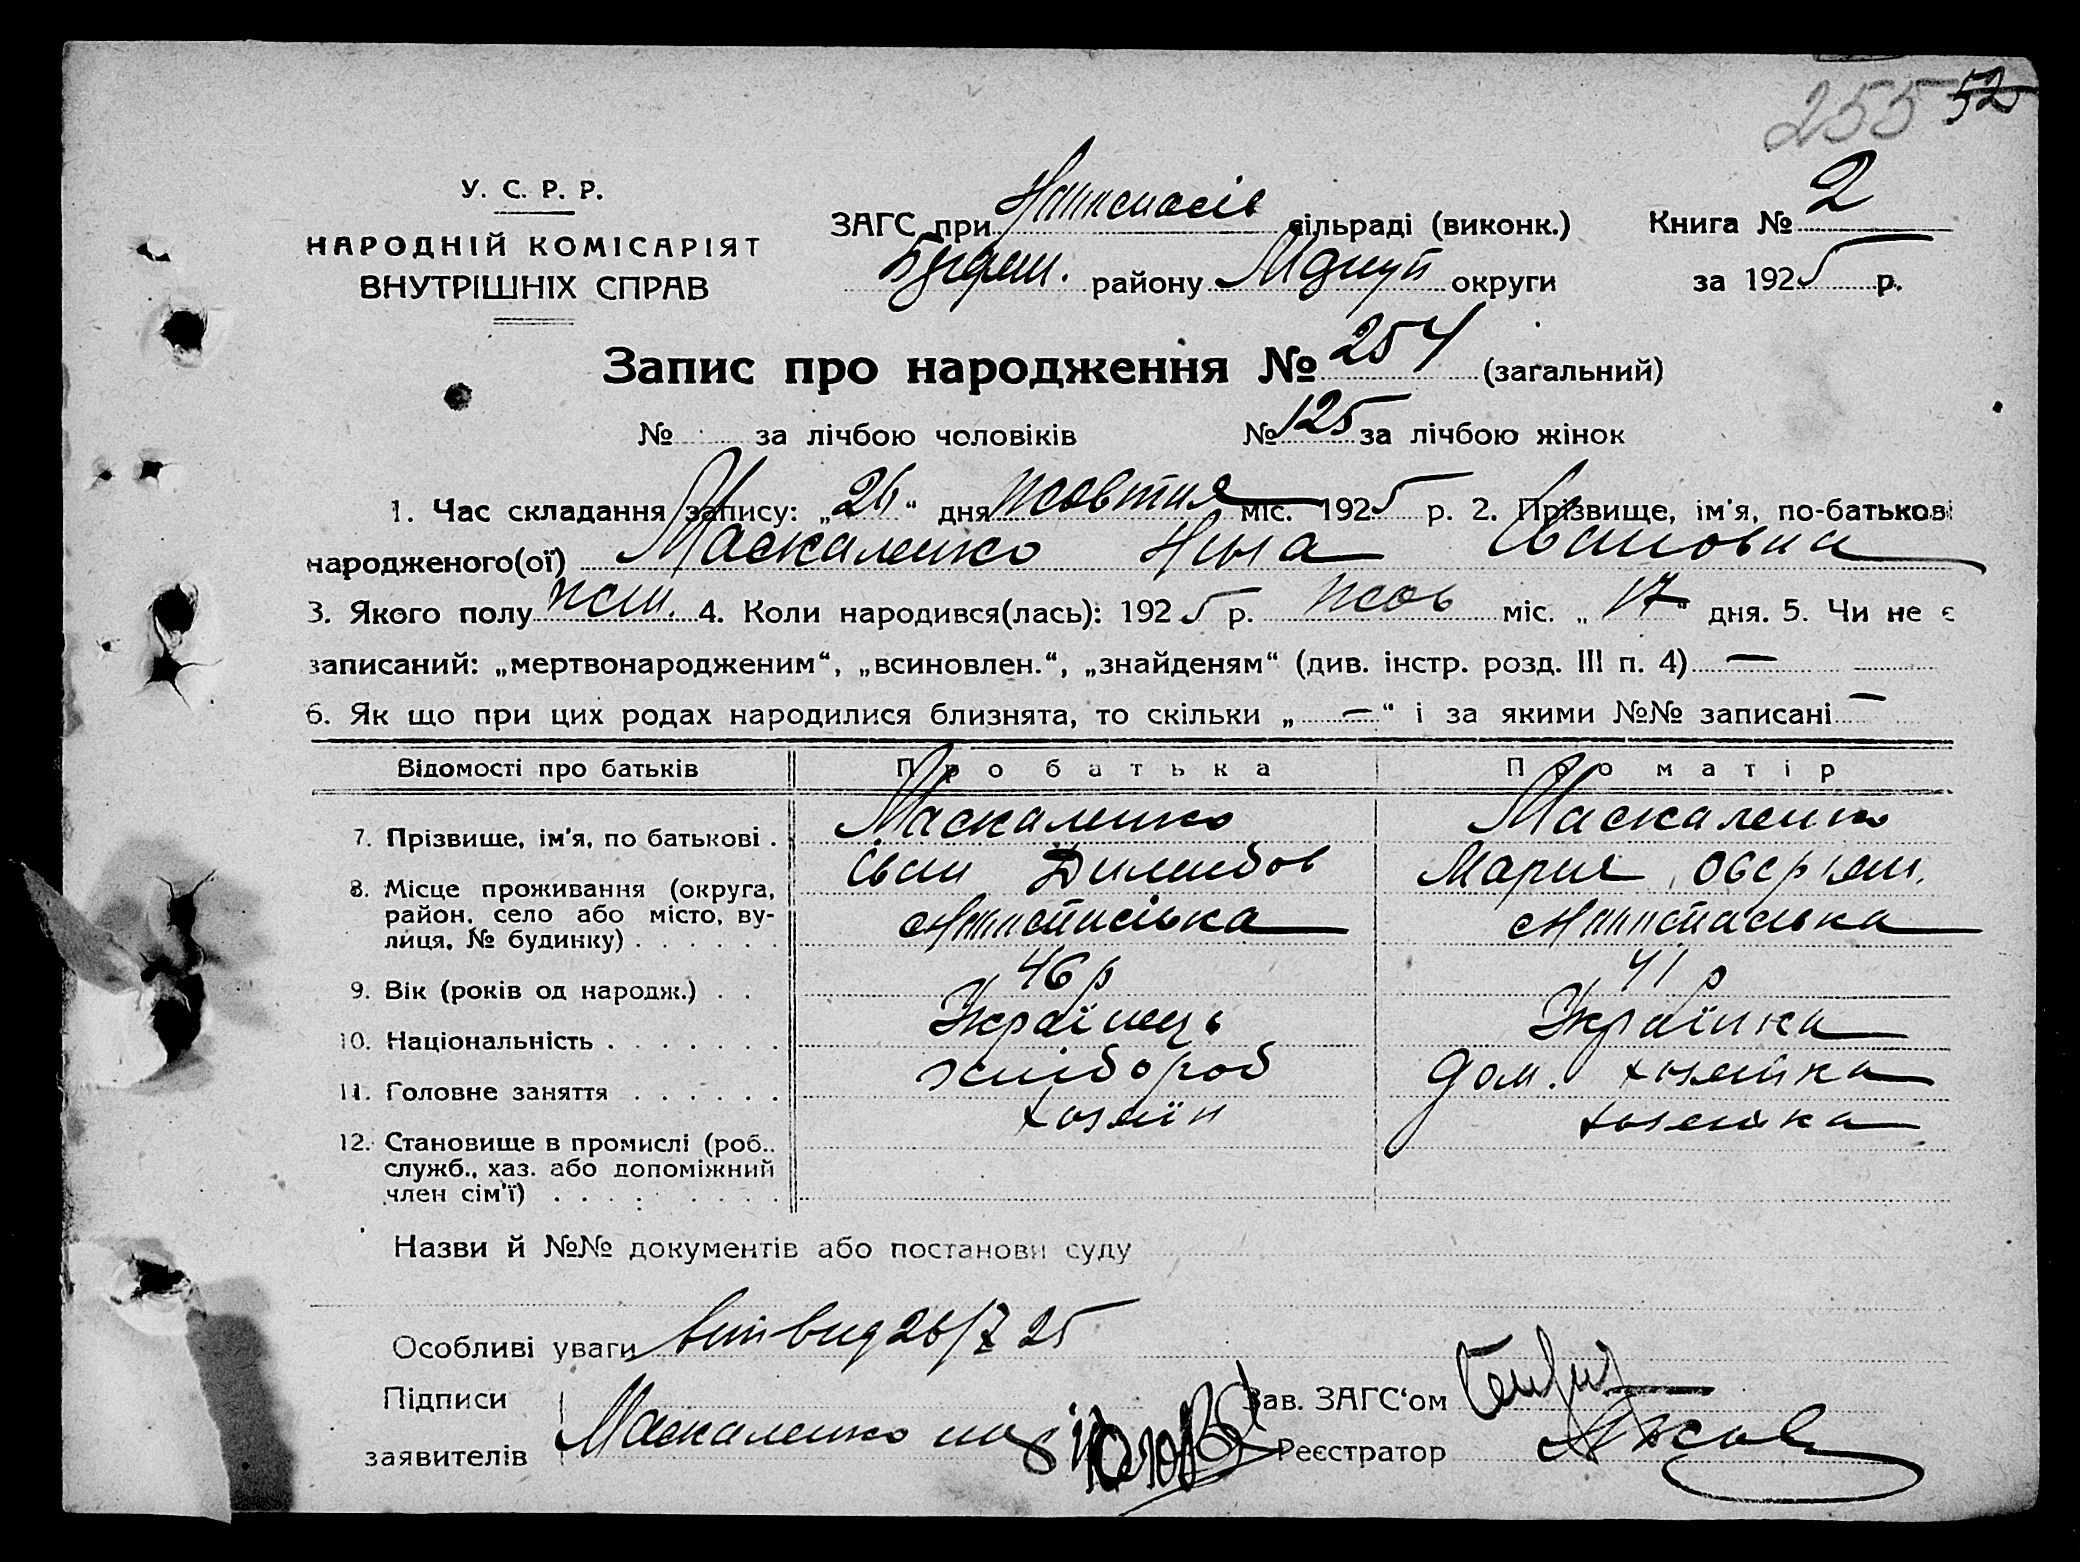 255 52
У. С. Р. Р.
НАРОДНІЙ КОМІСАРІЯТ
ВНУТРІШНІХ СПРАВ
ЗАГС при сільраді (виконк.) Книга № 2
району округи за 1925 р.
Запис про народження № 254 (загальний)
№ за лічбою чоловіків № 125 за лічбою жінок
1. Час складання запису: „26“ дня жовтня міс. 1925 р. 2. Прізвище, ім'я, по-батькові
народженого(ої) Маскаленко Нина Івановна
3. Якого полу жін. 4. Коли народився(лась): 1925 р. жов міс. „17“ дня. 5. Чи не є
записаний: „мертвонародженим“, „всиновлен.“, „знайденям“ (див. інстр. розд. III п. 4) —
6. Як що при цих родах народилися близнята, то скільки „—“ і за якими №№ записані —
Відомості про батьків Про батька Про матір
7. Прізвище, ім'я, по батькові . Маскаленко Маскаленко
Іван Мария
8. Місце проживання (округа,
район, село або місто, ву-
лиця, № будинку) . . . . . .
9. Вік (років од народж.) . . 46 р 41 р
10. Національність . . . . . . . Українець Українка
11. Головне заняття . . . . . . хлібороб дом. хозяйка
12. Становище в промислі (роб.. хозяїн хозяйка
служб., хаз. або допоміжний
член сім'ї) . . . . . . . . .
Назви й №№ документів або постанови суду
Особливі уваги 26/X 25
Підписи Зав. ЗАГС‘ом
заявителів Маскаленко Реєстратор